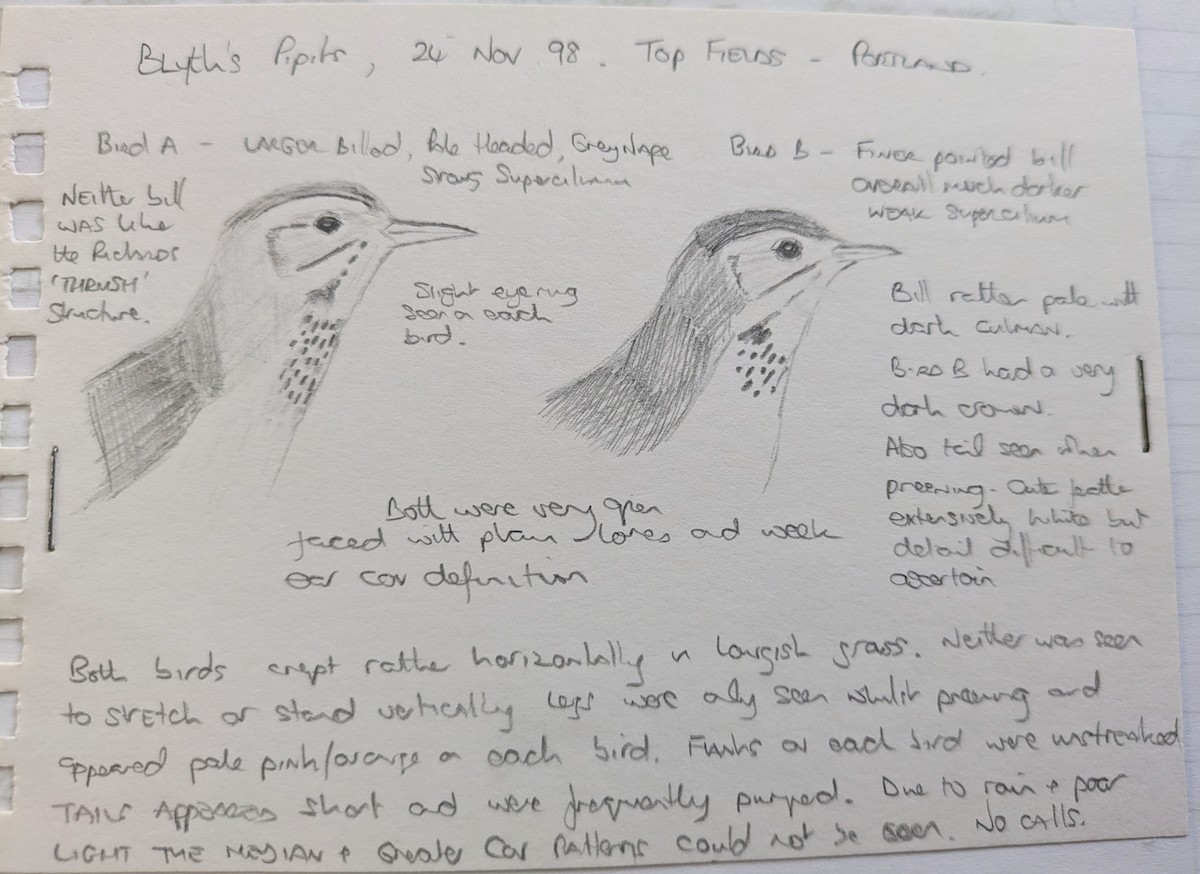 Blyth's Pipits, 24 Nov 98. Top Fields - Portland.
Bird A - Larger Billed, Pale Headed, Grey Nape
Strong Supercilium
Neither bill
was like
the Richards
'THRUSH'
Structure.
Slight eyering
seen on each
bird.
Bird B - Finer pointed bill
overall much darker
weak Supercilium
Bill rather pale with
dark culmen.
Bird B had a very
dark crown.
Also tail seen when
preening - Outer feather
extensively white but
detail difficult to
ascertain
Both were very open
faced with plain lores and weak
ear cov definition
Both birds crept rather horizontally in longish grass. Neither was seen
to stretch or stand vertically Legs were only seen whilst preening and
appeared pale pink/orange on each bird. Flanks on each bird were unstreaked
Tails appeared short and were frequently pumped. Due to rain + poor
LIGHT THE MEDIAN + Greater Cov Patterns could not be seen. No CALLS.